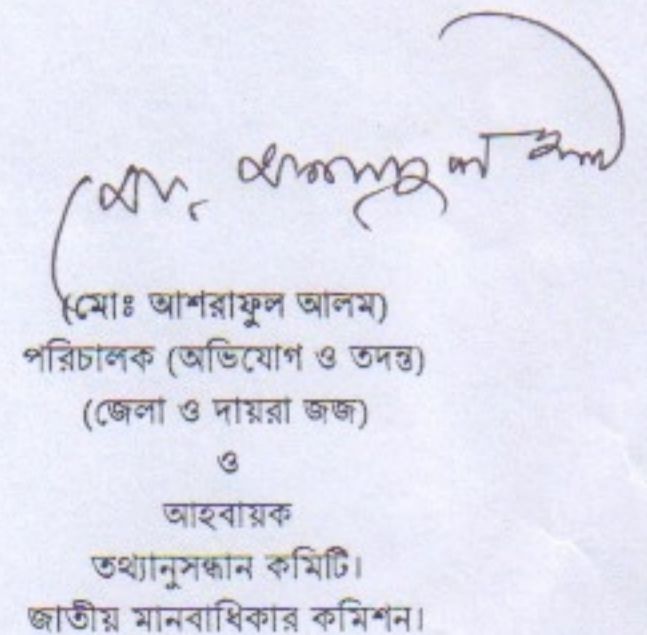 (মোঃ আশরাফুল আলম)
পরিচালক (অভিযোগ ও তদন্ত)
(জেলা ও দায়রা জজ)
ও
আহবায়ক
তথ্যানুসন্ধান কমিটি।
জাতীয় মানবাধিকার কমিশন।